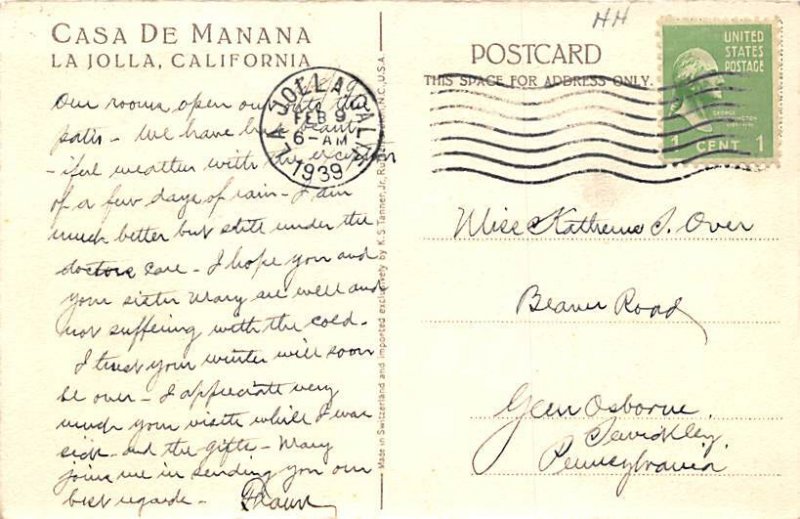 CASA DE MANANA
LA JOLLA, CALIFORNIA
Our rooms open out onto the
patio - We have had beaut
- iful weather with the exception
of a few days of rain - I am
much better but still under the
doctors care - I hope you and
your sister Mary are well and
not suffering with the cold -
I trust your winter will soon
be over - I appreciate very
much your visits while I was
sick - and the gifts - Mary
joins me in sending you our
best regards -
LA JOLLA, CALIF.
FEB 9
6 - AM
1939
Made in Switzerland and imported exclusively by K. S. Tanner, Jr., N.C., U.S.A.
HH
POSTCARD
THIS SPACE FOR ADDRESS ONLY.
UNITED
STATES
POSTAGE
GEORGE
WASHINGTON
1 CENT 1
Miss Over
Beaver Road
Glen Osborne
Sewickley
Pennsylvania